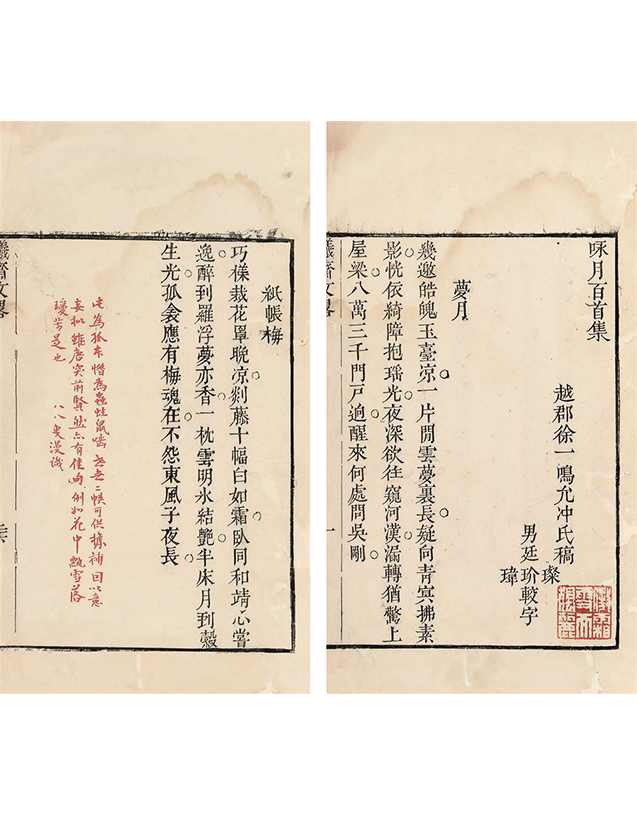 咏月百首集
越郡徐一鳴允冲氏稿
璨
男廷玠較字
瑋
夢月
幾邀皓魄玉臺凉一片閒雲夢裏長疑向青冥拂素
影恍依綺障抱瑶光夜深欲往窺河漢漏轉猶驚上
屋梁八萬三千門戸逈醒來何處問吳剛
齋文畧
一
紙帳梅
巧樣裁花單晩凉剡藤十幅白如霜臥同和靖心甞
逸醉到羅浮夢亦香一枕雲明氷結艷半床月到縠
生光孤衾應有梅魂在不怨東風子夜長
此為孤本惜為蟲蛀鼠嚙 二帙可供 補 以意
妄 唐突前賢然亦有佳句 例如花中飄雪落
瓊芳是也
八八叟漫識
齋文畧